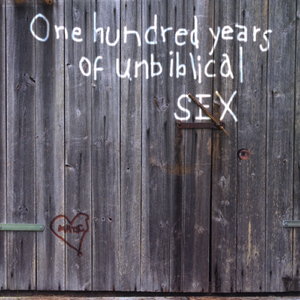 One hundred years
of unbiblical
SEX